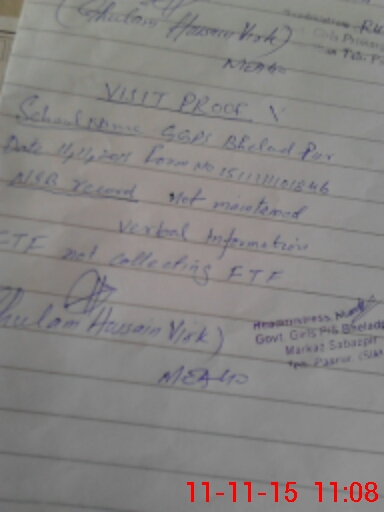 (Ghulam Hussain Virk)
MEA40
VISIT PROOF
School Name GGPS Bhelad Pur
Date 11,11,2015 Form No
NSB record not maintained
Verbal Information
FTF not collecting FTF
Ghulam Hussain Virk)
MEA40
Headmistress
Govt. Girls P/S
Markaz Sabazpir
11-11-15 11:08